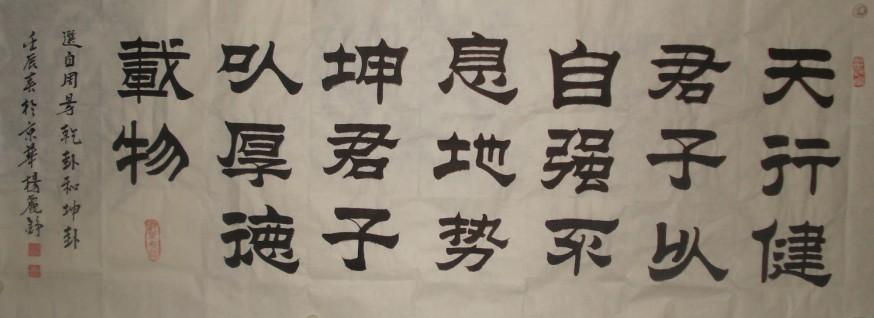 天行健
君子以
自强不
息地势
坤君子
以厚德
載物
選自周易乾卦和坤卦
壬辰春於京華楊麗錚